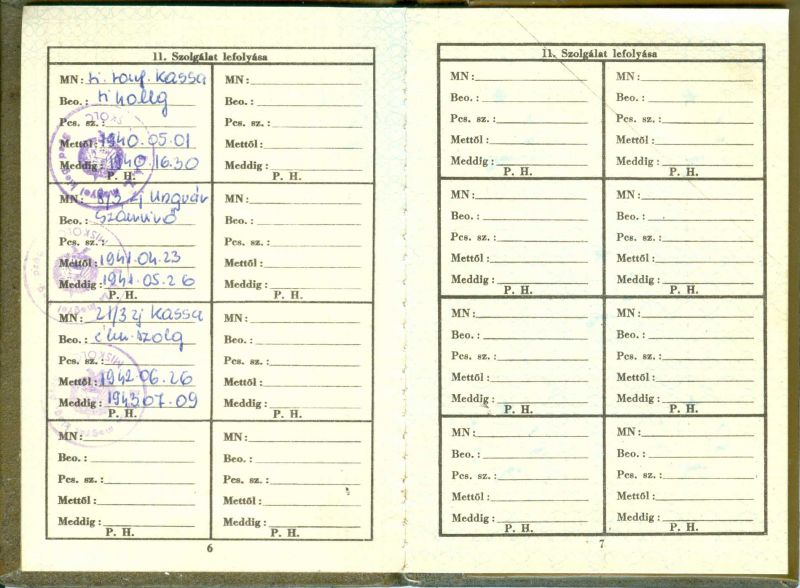 11. Szolgálat lefolyása
MN: Kassa
Beo.:
Pcs. sz.:
Mettől: 1940.05.01
Meddig: 1940.16.30
P. H.
MN: 8/3 zj Ungvár
Beo.: Számvivő
Pcs. sz.:
Mettől: 1941.04.23
Meddig: 1941.05.26
P. H.
MN: 21/3 zj Kassa
Beo.: élm. szolg
Pcs. sz.:
Mettől: 1942.06.26
Meddig: 1943 07.09
P. H.
MN:
Beo.:
Pcs. sz.:
Mettől:
Meddig:
P. H.
MN:
Beo.:
Pcs. sz.:
Mettől:
Meddig:
P. H.
MN:
Beo.:
Pcs. sz.:
Mettől:
Meddig:
P. H.
MN:
Beo.:
Pcs. sz.:
Mettől:
Meddig:
P. H.
MN:
Beo.:
Pcs. sz.:
Mettől:
Meddig:
P. H.
6
11. Szolgálat lefolyása
MN:
Beo.:
Pcs. sz.:
Mettől:
Meddig:
P. H.
MN:
Beo.:
Pcs. sz.:
Mettől:
Meddig:
P. H.
MN:
Beo.:
Pcs. sz.:
Mettől:
Meddig:
P. H.
MN:
Beo.:
Pcs. sz.:
Mettől:
Meddig:
P. H.
MN:
Beo.:
Pcs. sz.:
Mettől:
Meddig:
P. H.
MN:
Beo.:
Pcs. sz.:
Mettől:
Meddig:
P. H.
MN:
Beo.:
Pcs. sz.:
Mettől:
Meddig:
P. H.
MN:
Beo.:
Pcs. sz.:
Mettől:
Meddig:
P. H.
7